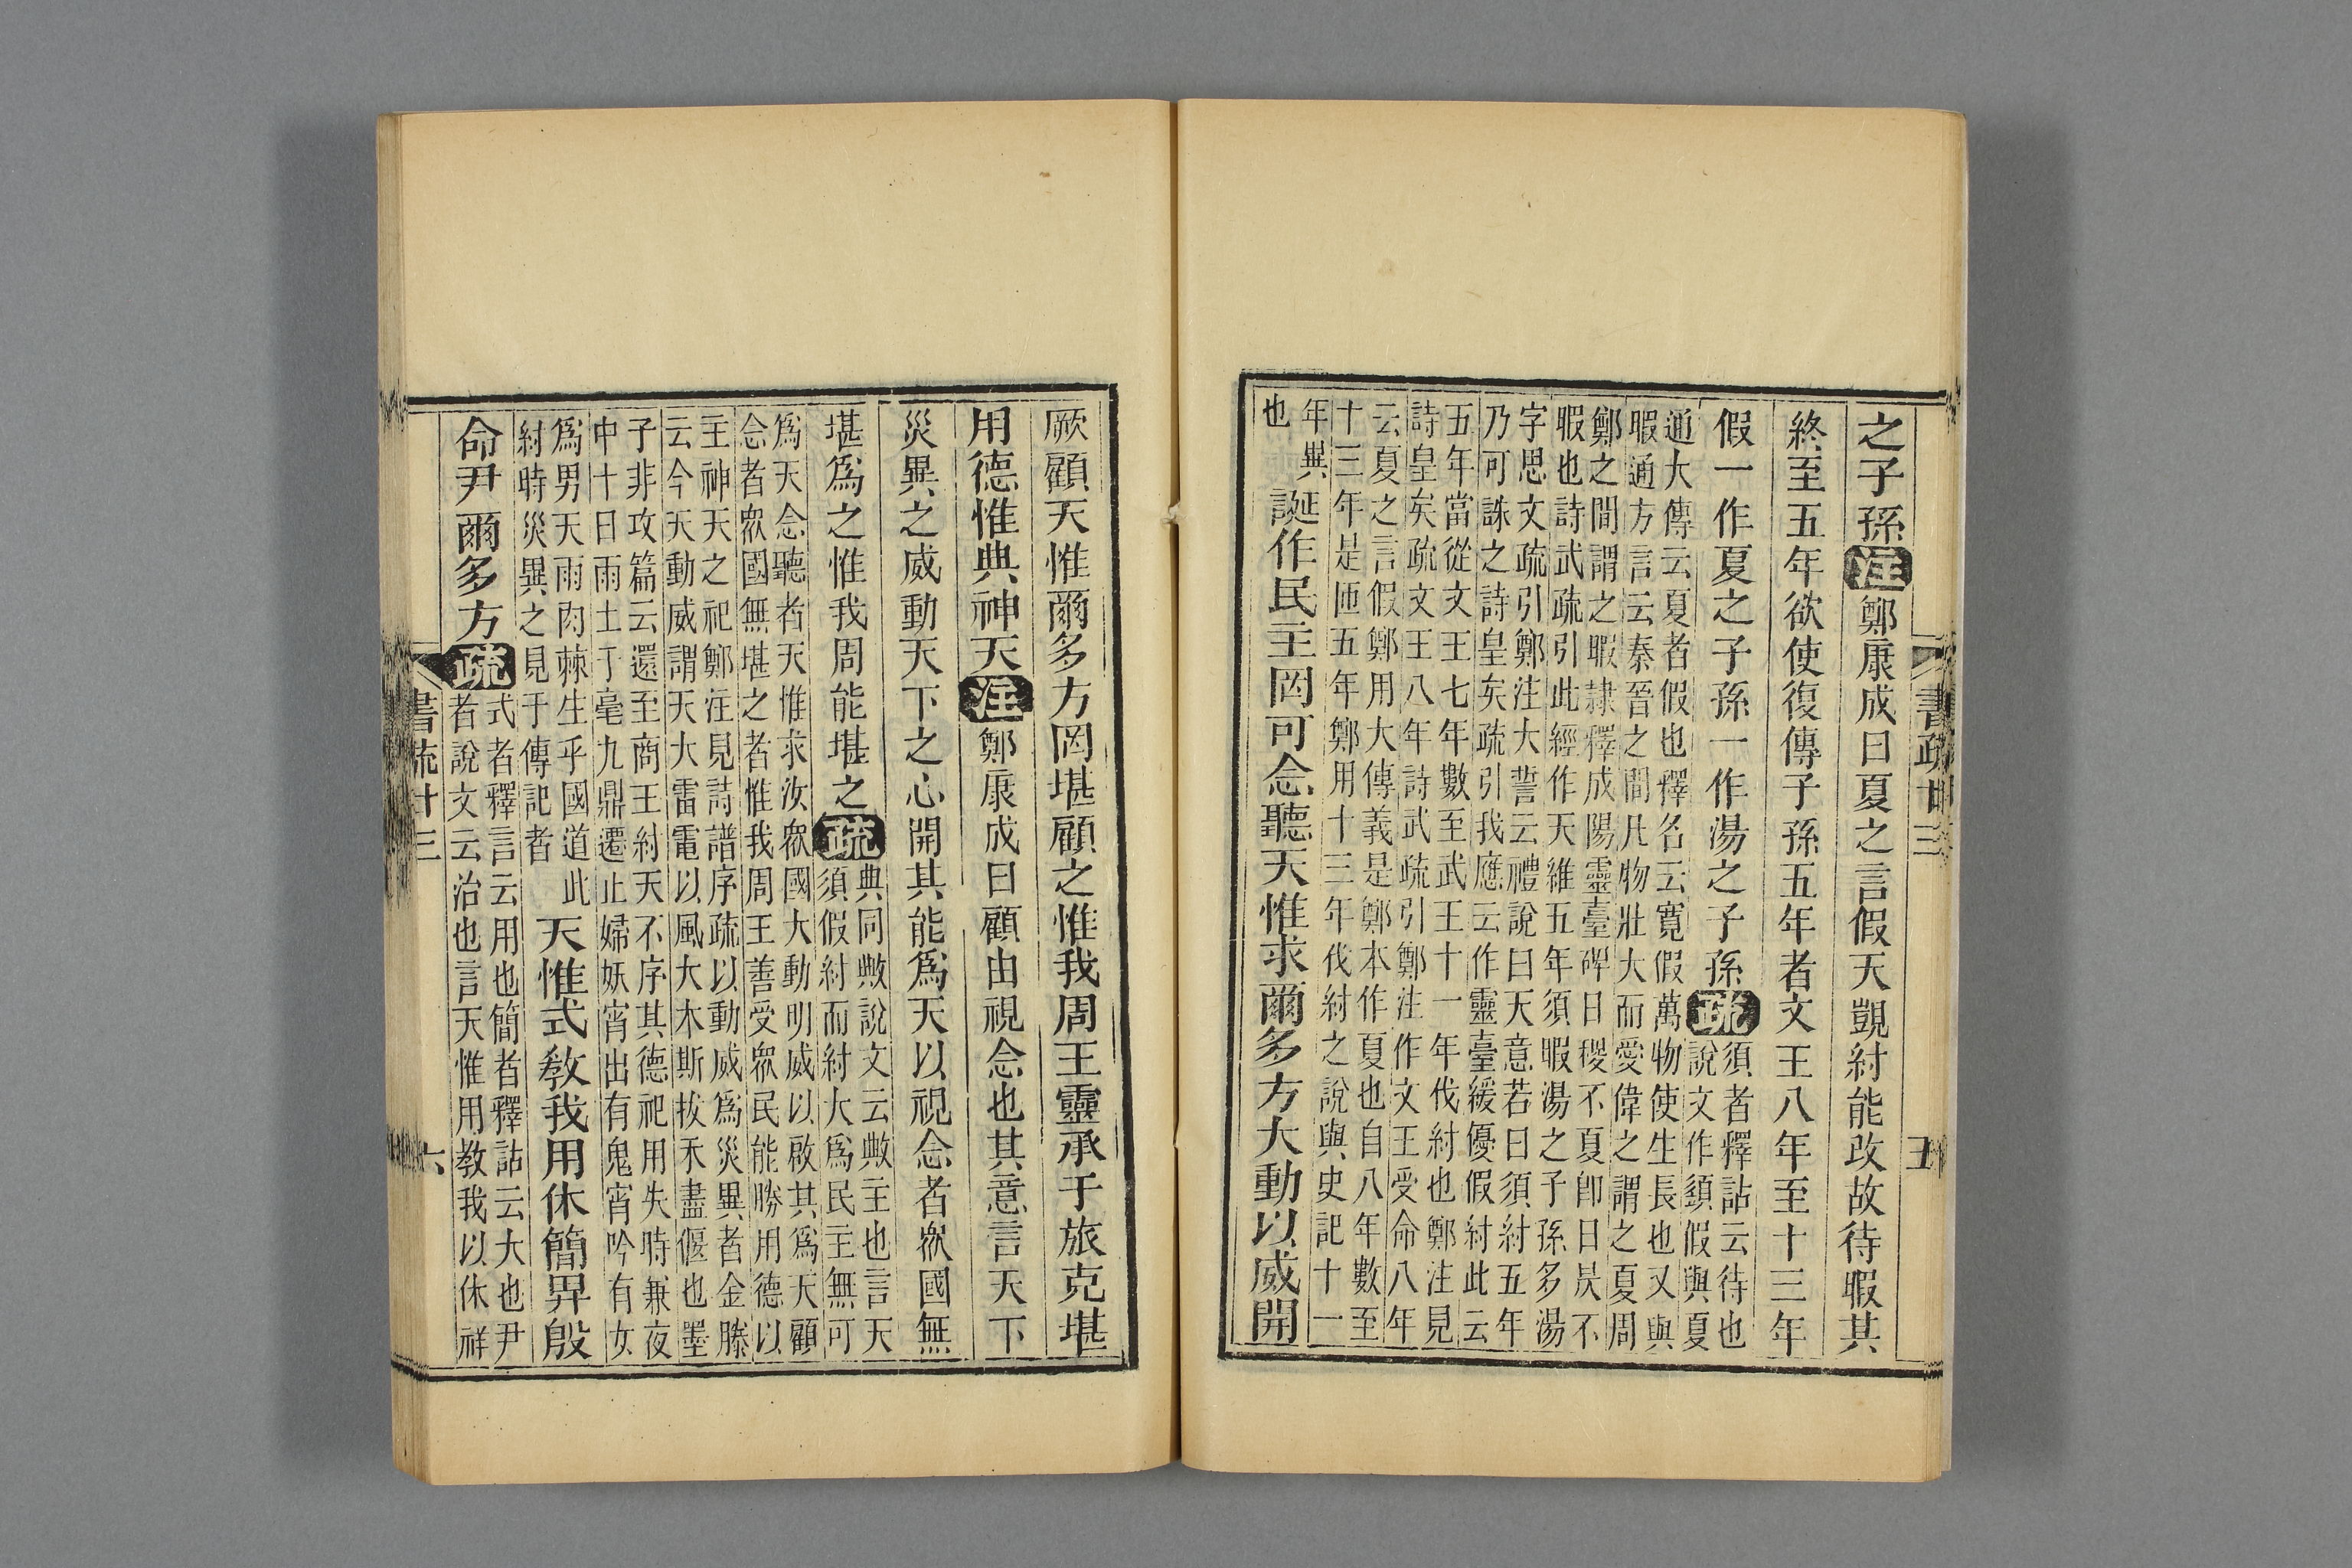 書疏廿三
五
之子孫注鄭康成曰夏之言假天覬紂能改故待暇其
終至五年欲使復傳子孫五年者文王八年至十三年
假一作夏之子孫一作湯之子孫疏
須者釋詁云待也
說文作䇓假與夏
通大傳云夏者假也釋名云寬假萬物使生長也又與
暇通方言云秦晉之間凡物壯大而愛偉之謂之夏周
鄭之間謂之暇隸釋成陽靈臺碑日稷不夏卽日昃不
暇也詩武疏引此經作天維五年須暇湯之子孫多湯
字思文疏引鄭注大誓云禮說曰天意若曰須紂五年
乃可誅之詩皇矣疏引我應云作靈臺緩優假紂此云
五年當從文王七年數至武王十一年伐紂也鄭注見
詩皇矣疏文王八年詩武疏引鄭注作文王受命八年
云夏之言假鄭用大傳義是鄭本作夏也自八年數至
十三年是匝五年鄭用十三年伐紂之說與史記十一
年異
也
誕作民主罔可念聽天惟求爾多方大動以威開
厥顧天惟爾多方罔堪顧之惟我周王靈承于旅克堪
用德惟典神天注鄭康成曰顧由視念也其意言天下
災異之威動天下之心開其能爲天以視念者衆國無
堪爲之惟我周能堪之疏
典同敟說文云敟主也言天
須假紂而紂大爲民主無可
爲天念聽者天惟求汝衆國大動明威以啟其爲天顧
念者衆國無堪之者惟我周王善受衆民能勝用德以
主神天之祀鄭注見詩譜序疏以動威爲災異者金縢
云今天動威謂天大雷電以風大木斯拔禾盡偃也墨
子非攻篇云還至商王紂天不序其德祀用失時兼夜
中十日雨土于毫九鼎遷止婦妖宵出有鬼宵吟有女
爲男天雨肉棘生乎國道此
紂時災異之見于傳記者
天惟式教我用休簡畀殷
命尹爾多方疏
式者釋言云用也簡者釋詁云大也尹
者說文云治也言天惟用教我以休祥
書疏廿三
六